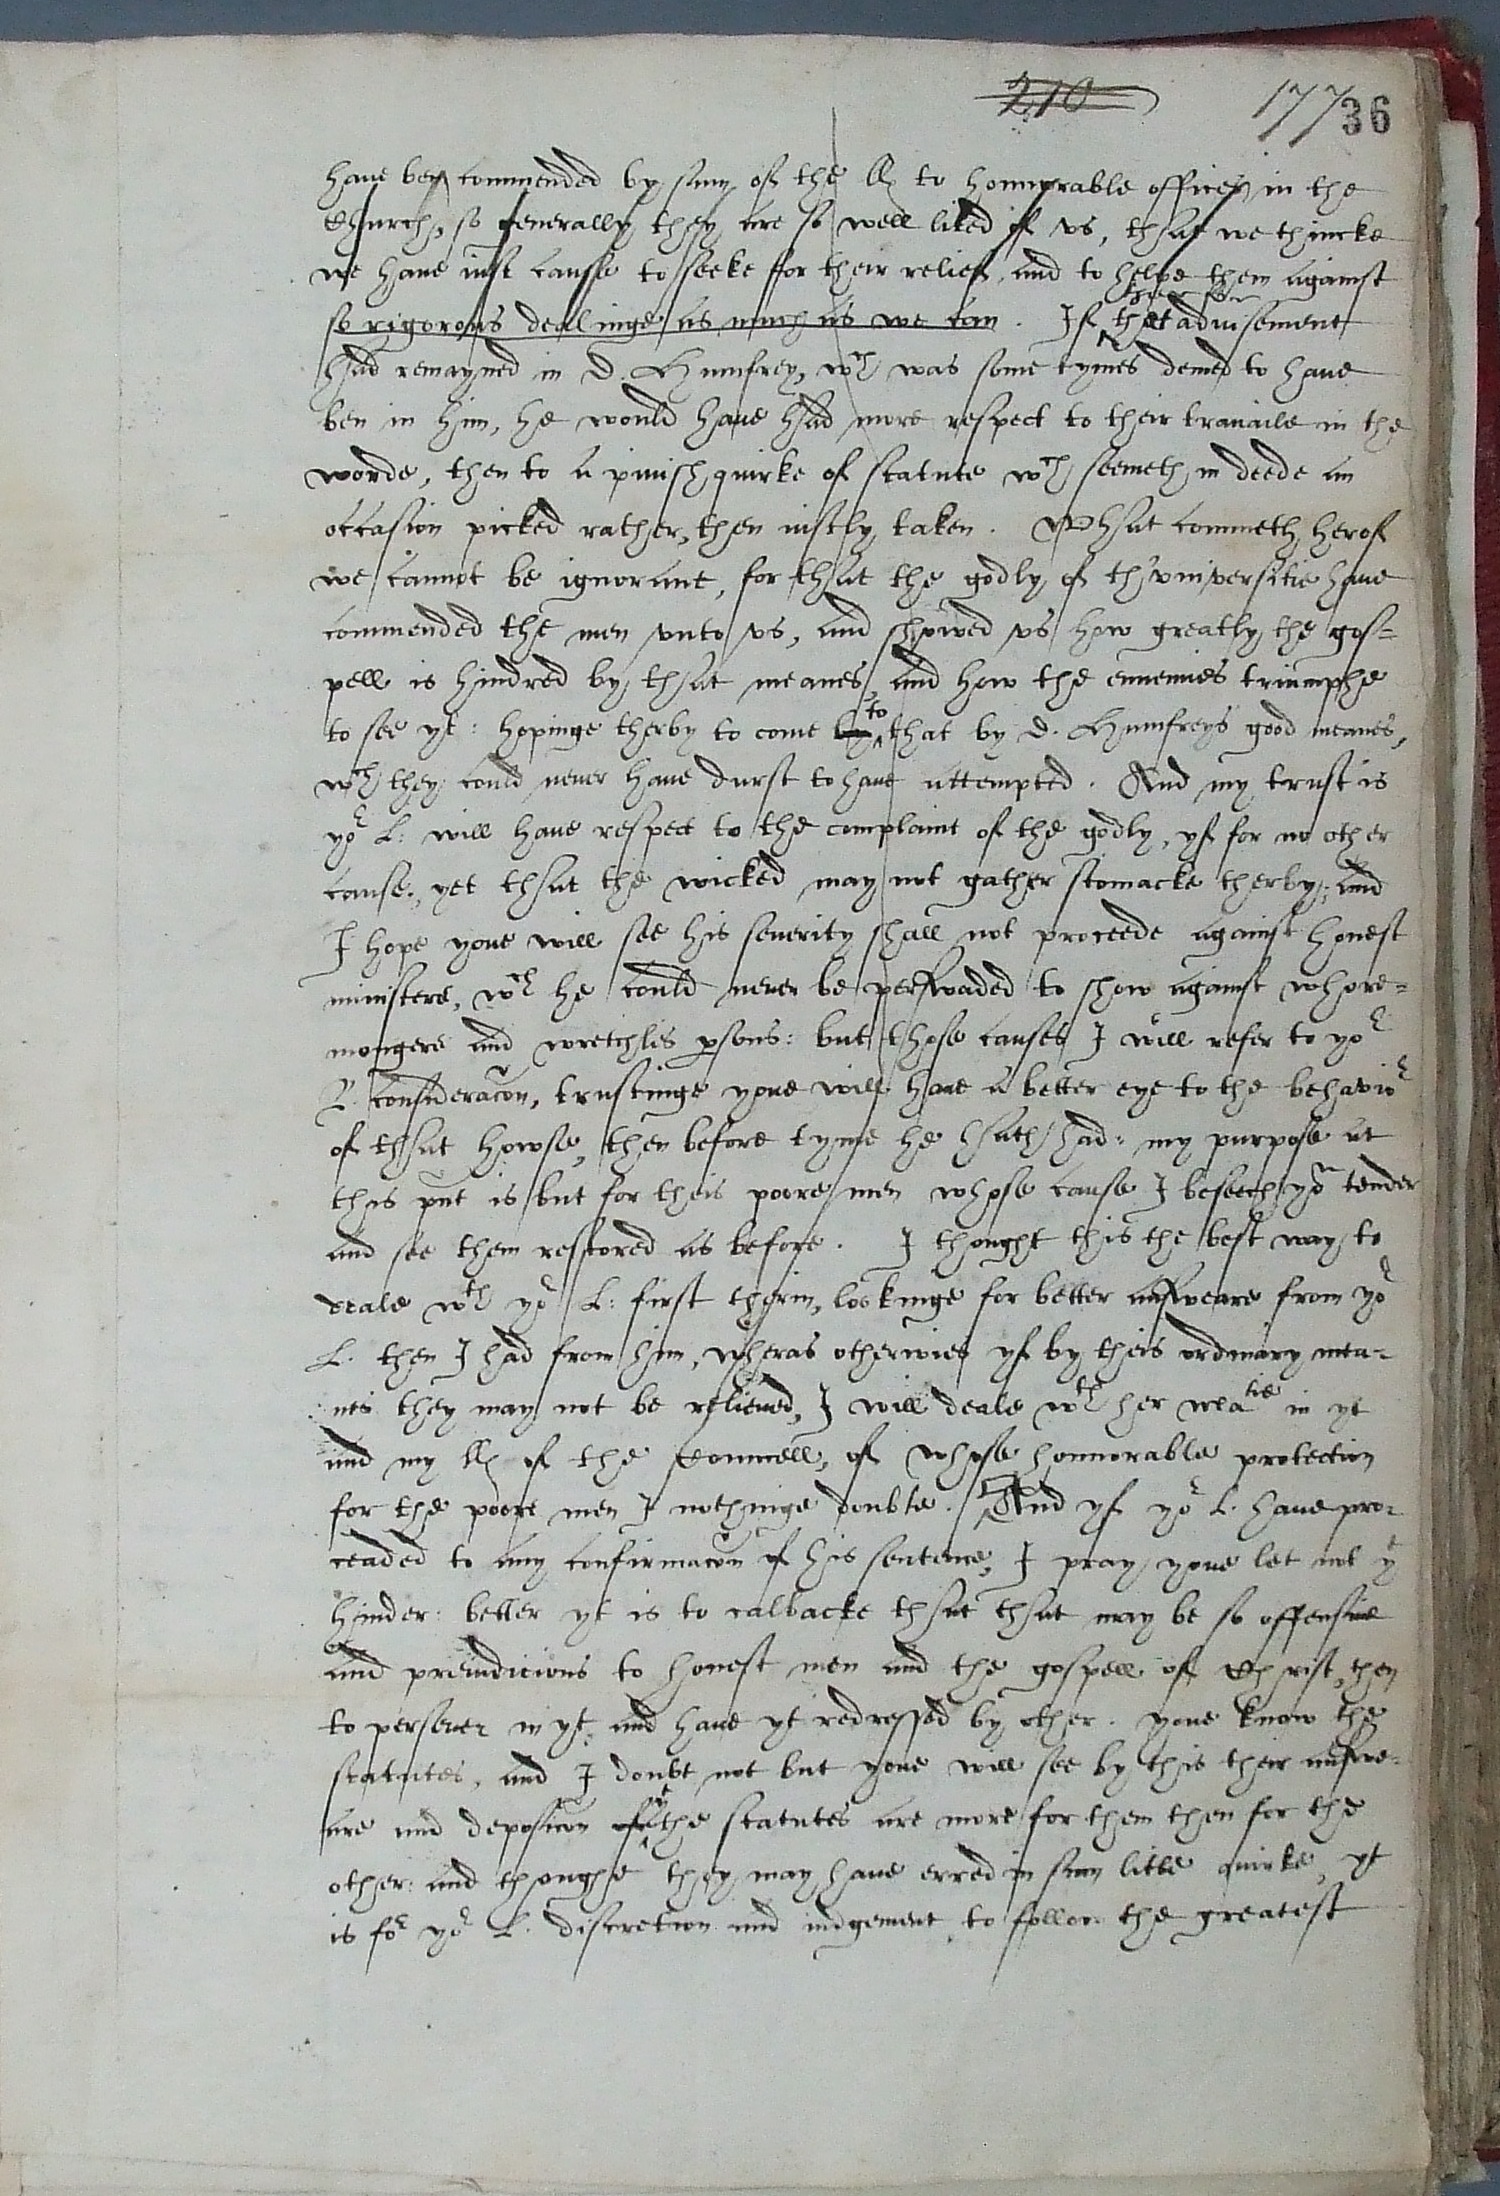 210 177 36
haue ben commended by sum of the LL to honnorable offices in the
Church, so generally they are so well liked of vs, that we thincke
we haue iust cause to seeke for their relief, and to helpe them against
so rigorous dealinge as much as we can. If that aduisement
had remayned in D. Humfrey, wch was some tymes demed to haue
ben in him, he would haue had more respect to their trauaile in the
worde, then to a puish quirke of statute wch seemeth in deede an
occasion picked rather, then iustly taken. What commeth herof
we cannot be ignorant, for that the godly of thvniversitie haue
commended the men vnto vs, and showed vs how greatly the gos=
pell is hindred by that meanes, and how the ennemies triumphe
to see yt: hopinge therby to come by to that by D. Humfreys good meanes,
wch they could neuer haue durst to haue attempted. And my trust is
yor L: will haue respect to the complaint of the godly, yf for no other
cause, yet that the wicked may not gather stomacke therby; and
I hope youe will see his seuerity shall not proceede against honest
ministers, wch he could neuer be perswaded to show against whore=
mongers and wretchles psons: but those causes I will refer to yor
L. consideracon, trustinge youe will haue a better eye to the behavior
of that howse, then before tyme he hath had: my purpose at
this pnt is but for theis poore men whose cause I beseech yow tender
and see them restored as before. I thought this the best way to
deale wth yor L: first therin, lookinge for better answeare from yor
L. then I had from him, wheras otherwies yf by theis ordinary mea-
nes they may not be relieued, I will deale wth her matie in yt
and my LL of the counnell, of whose honnorable protection
for the poore men I nothinge doubte. And yf yor L. haue pro-
ceaded to any confirmacon of his sentence, I pray youe let not yt
hinder: better yt is to calbacke that that may be so offensiue
and preiudicious to honest men and the gospell of Christ, then
to perseuer in yt, and haue yt redressed by other. youe know the
statutes, and I doubt not but youe will see by this their answe-
are and deposicon of yt the statutes are more for them then for the
other: and thoughe they may haue erred in sum litle quirke, yt
is for yor L. discretion and iudgement to follow the greatest